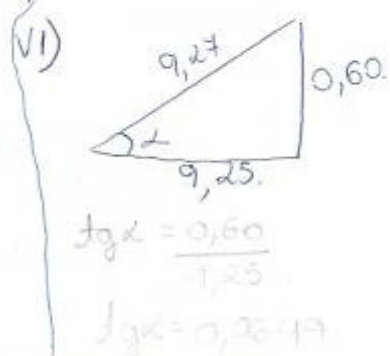 VI)
9,27
0,60.
α
9,25.
tg α = 0,60
9,25
tg α =